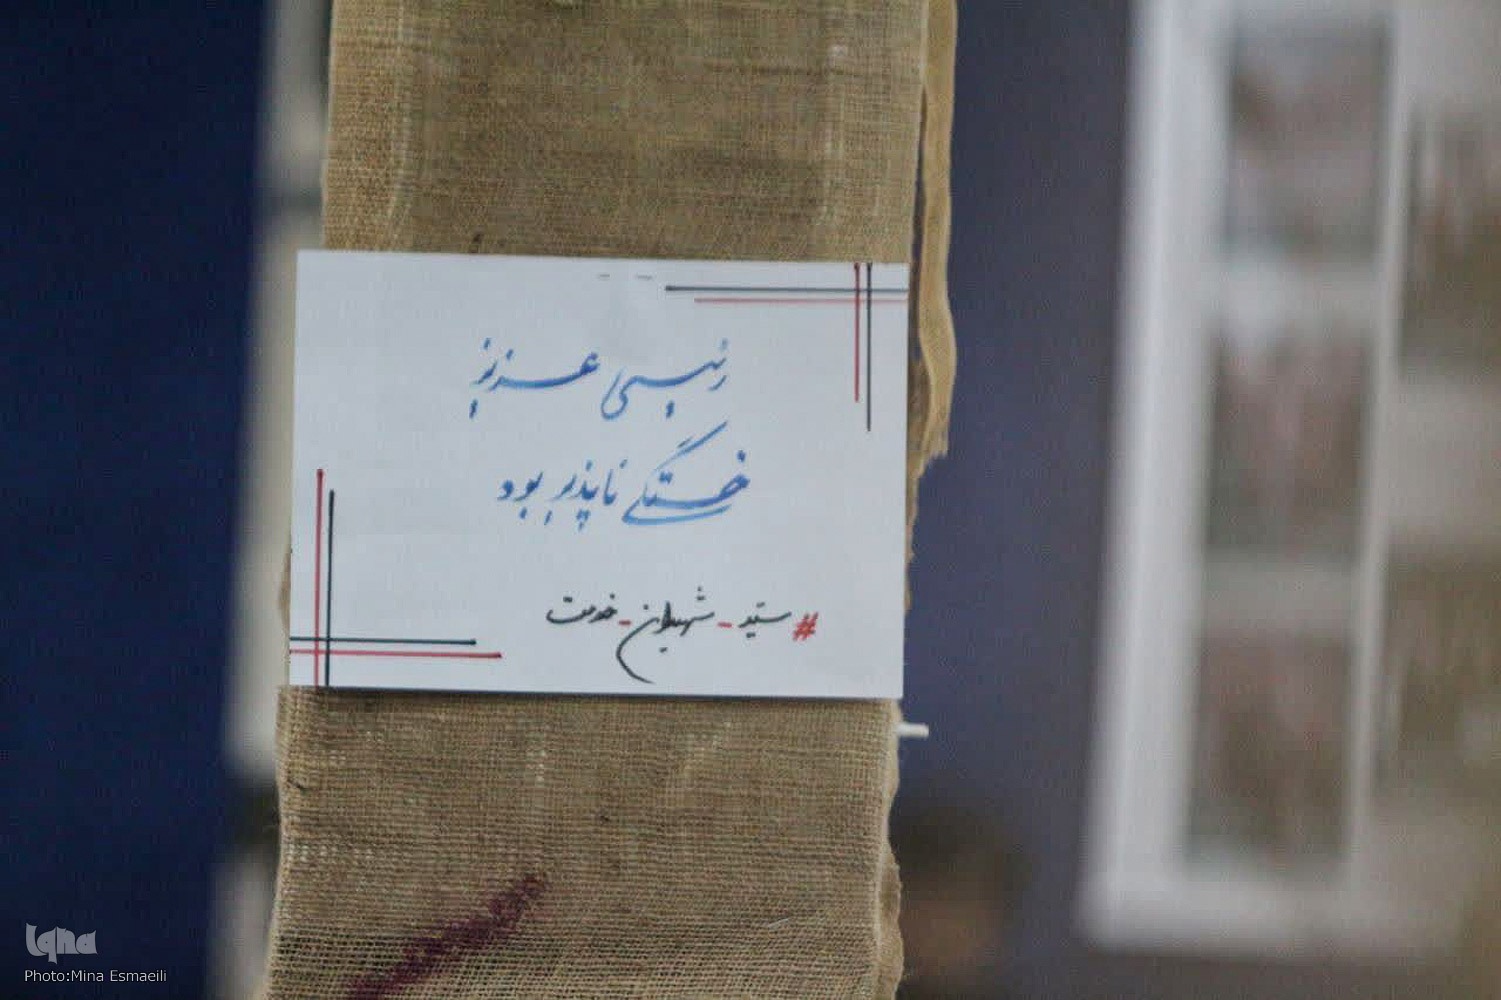 رئیسی عزیز
خستگی ناپذیر بود
#سید_شهیدان_خدمت
Iqna
Photo:Mina Esmaeili